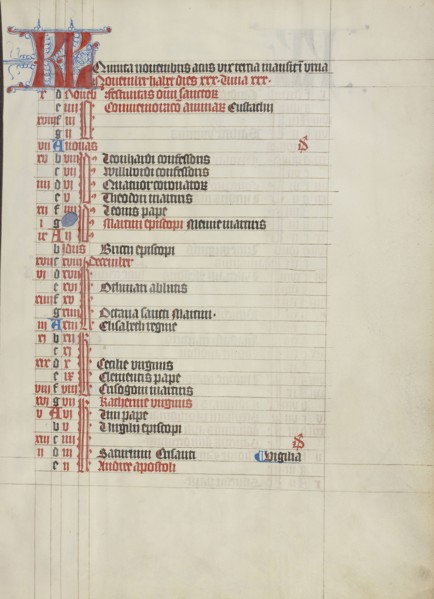 KL Quinta novembris acus vix tercia mansit i urna
November habet dies xxx. luna xxx.
d Novēb festivitas oīm sanctor
e iiii Commemoracio animar Eustachii
xviii f iii
g ii
vii A nonas
xv b viii Leonhardi confessoris
c vii Willibordi confessoris
iiii d vi Quatuor coronator
e v Theodori martiris
xii f iiii Leonis pape
i g Martini episcopi Menne martiris
ix A ii
b idus Briccii episcopi
xvii c xviii December
vi d xvii
e xvi Othmari abbatis
xiiii f xv
g xiiii Octava sancti Martini.
iii A xiii Elisabeth regine
xi b xii
c xi
xix d x Cecilie virginis
e ix Clementis pape
viii f viii Crisogoni martiris
xvi g vii Katherine virginis
v A vi Lini pape
b v Virgilii episcopi
xiii c iiii
d iii Saturnini Crisanti Vigilia
e ii Andree apostoli